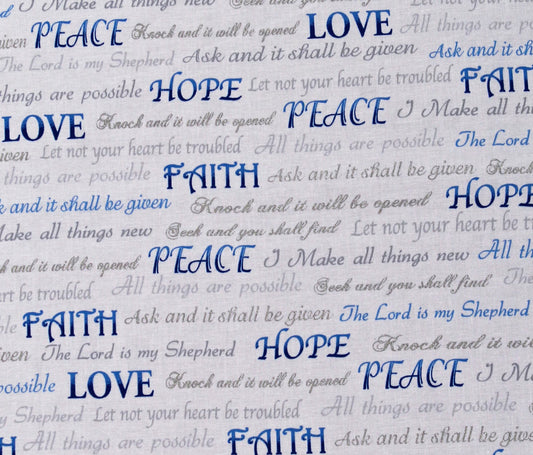 I Make all things new Seek and you shall find LOVE All things are
given PEACE Knock and it will be opened
The Lord is my Shepherd Ask and it shall be given Ask and it s
things are possible HOPE Let not your heart be troubled FAITH
LOVE Knock and it will be opened PEACE I Make all thing
iven Let not your heart be troubled All things are possible The Lord
All things are possible FAITH Ask and it shall be given Knock
k and it shall be given Knock and it will be opened HOPE
Make all things new Seek and you shall find Let not your heart be
ck and it will be opened PEACE I Make all things new All things
rt be troubled All things are possible Seek and you shall find The
ble FAITH Ask and it shall be given The Lord is my Shepherd
iven The Lord is my Shepherd HOPE Knock and it will be
possible LOVE Knock and it will be opened PEACE I Ma
y Shepherd Let not your heart be troubled All things are possible
TH All things are possible FAITH Ask and it shall be given